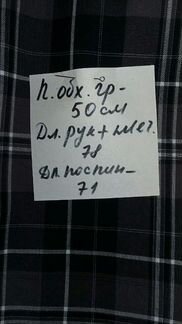 П. обх. гр-
50 см
Дл. рук + плеч.
78
Дл. поспин-
71